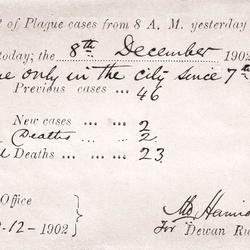 of Plague cases from 8 A. M. yesterday
today; the 8th December 1902
only in the city since 7th
Previous cases ... 46
New cases ... ... 2
Deaths ... ... 2
Deaths ... ... 23
Office
-12-1902)
For Dewan